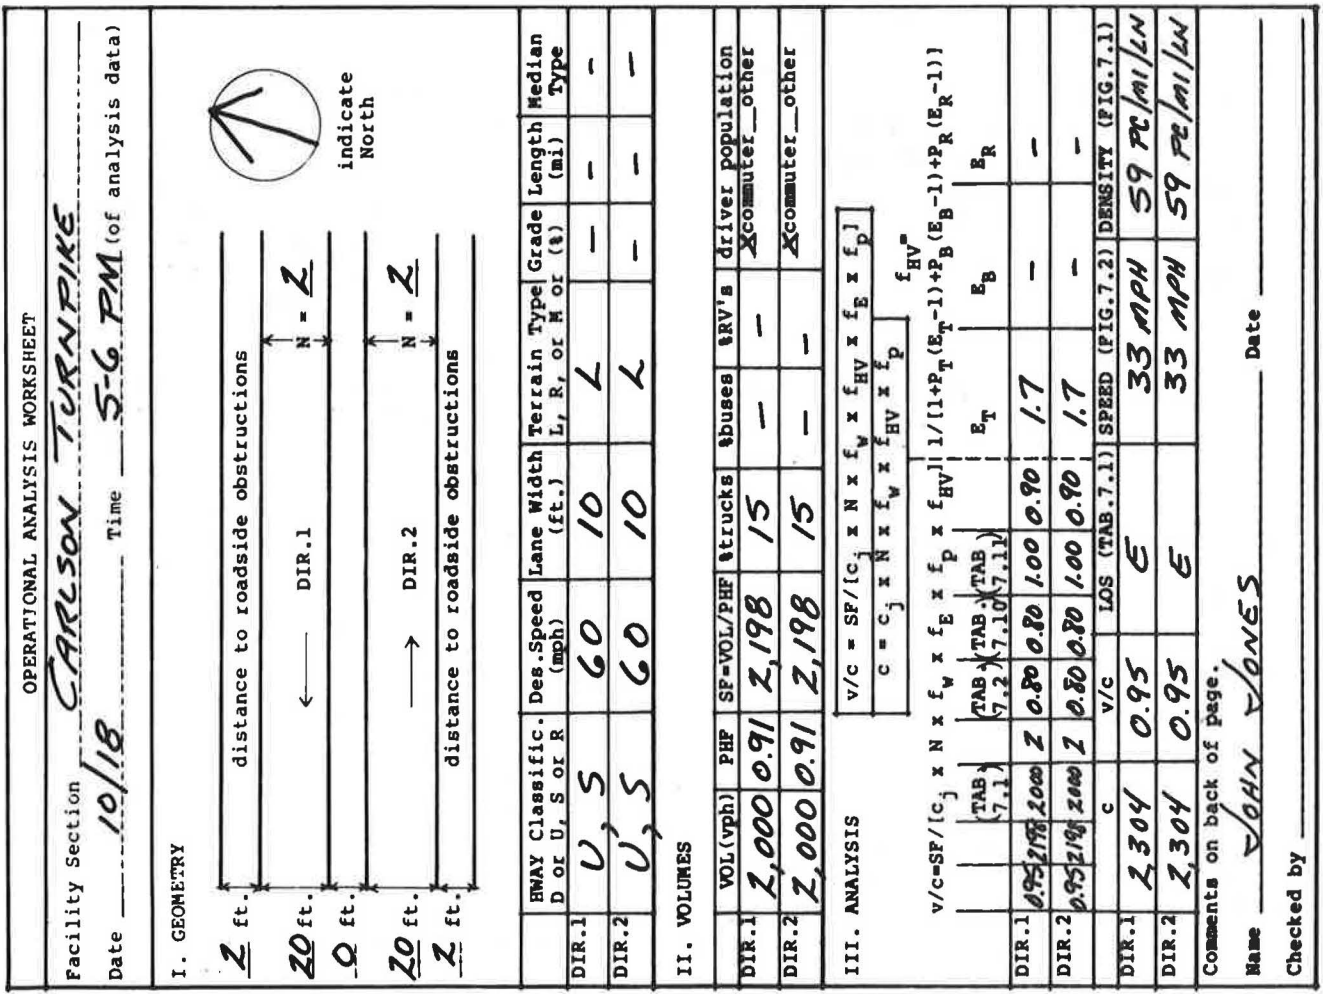 OPERATIONAL ANALYSIS WORKSHEET
Facility Section CARLSON TURNPIKE
Date 10/18 Time 5-6 PM (of analysis data)
I. GEOMETRY
2 ft. distance to roadside obstructions
20 ft. ← DIR.1 N = 2
0 ft.
20 ft. → DIR.2 N = 2
2 ft. distance to roadside obstructions
indicate
North
HWAY Classific. Des.Speed Lane Width Terrain Type Grade Length Median
D or U, S or R (mph) (ft.) L, R, or M or (%) (mi) Type
DIR.1 U, S 60 10 L — — —
DIR.2 U, S 60 10 L — — —
II. VOLUMES
VOL(vph) PHF SF=VOL/PHF %trucks %buses %RV's driver population
DIR.1 2,000 0.91 2,198 15 — — Xcommuter__other
DIR.2 2,000 0.91 2,198 15 — — Xcommuter__other
III. ANALYSIS
v/c = SF/[cj x N x fw x fHV x fE x fp]
c = cj x N x fw x fHV x fp
fHV=
v/c=SF/[cj x N x fw x fE x fp x fHV] 1/[1+PT(ET-1)+PB(EB-1)+PR(ER-1)]
(TAB 7.1) (TAB. 7.2) (TAB. 7.10) (TAB 7.11) ET EB ER
DIR.1 0.95 2198 2000 2 0.80 0.80 1.00 0.90 1.7 — —
DIR.2 0.95 2198 2000 2 0.80 0.80 1.00 0.90 1.7 — —
c v/c LOS (TAB.7.1) SPEED (FIG.7.2) DENSITY (FIG.7.1)
DIR.1 2,304 0.95 E 33 MPH 59 PC/MI/LN
DIR.2 2,304 0.95 E 33 MPH 59 PC/MI/LN
Comments on back of page.
Name JOHN JONES Date
Checked by